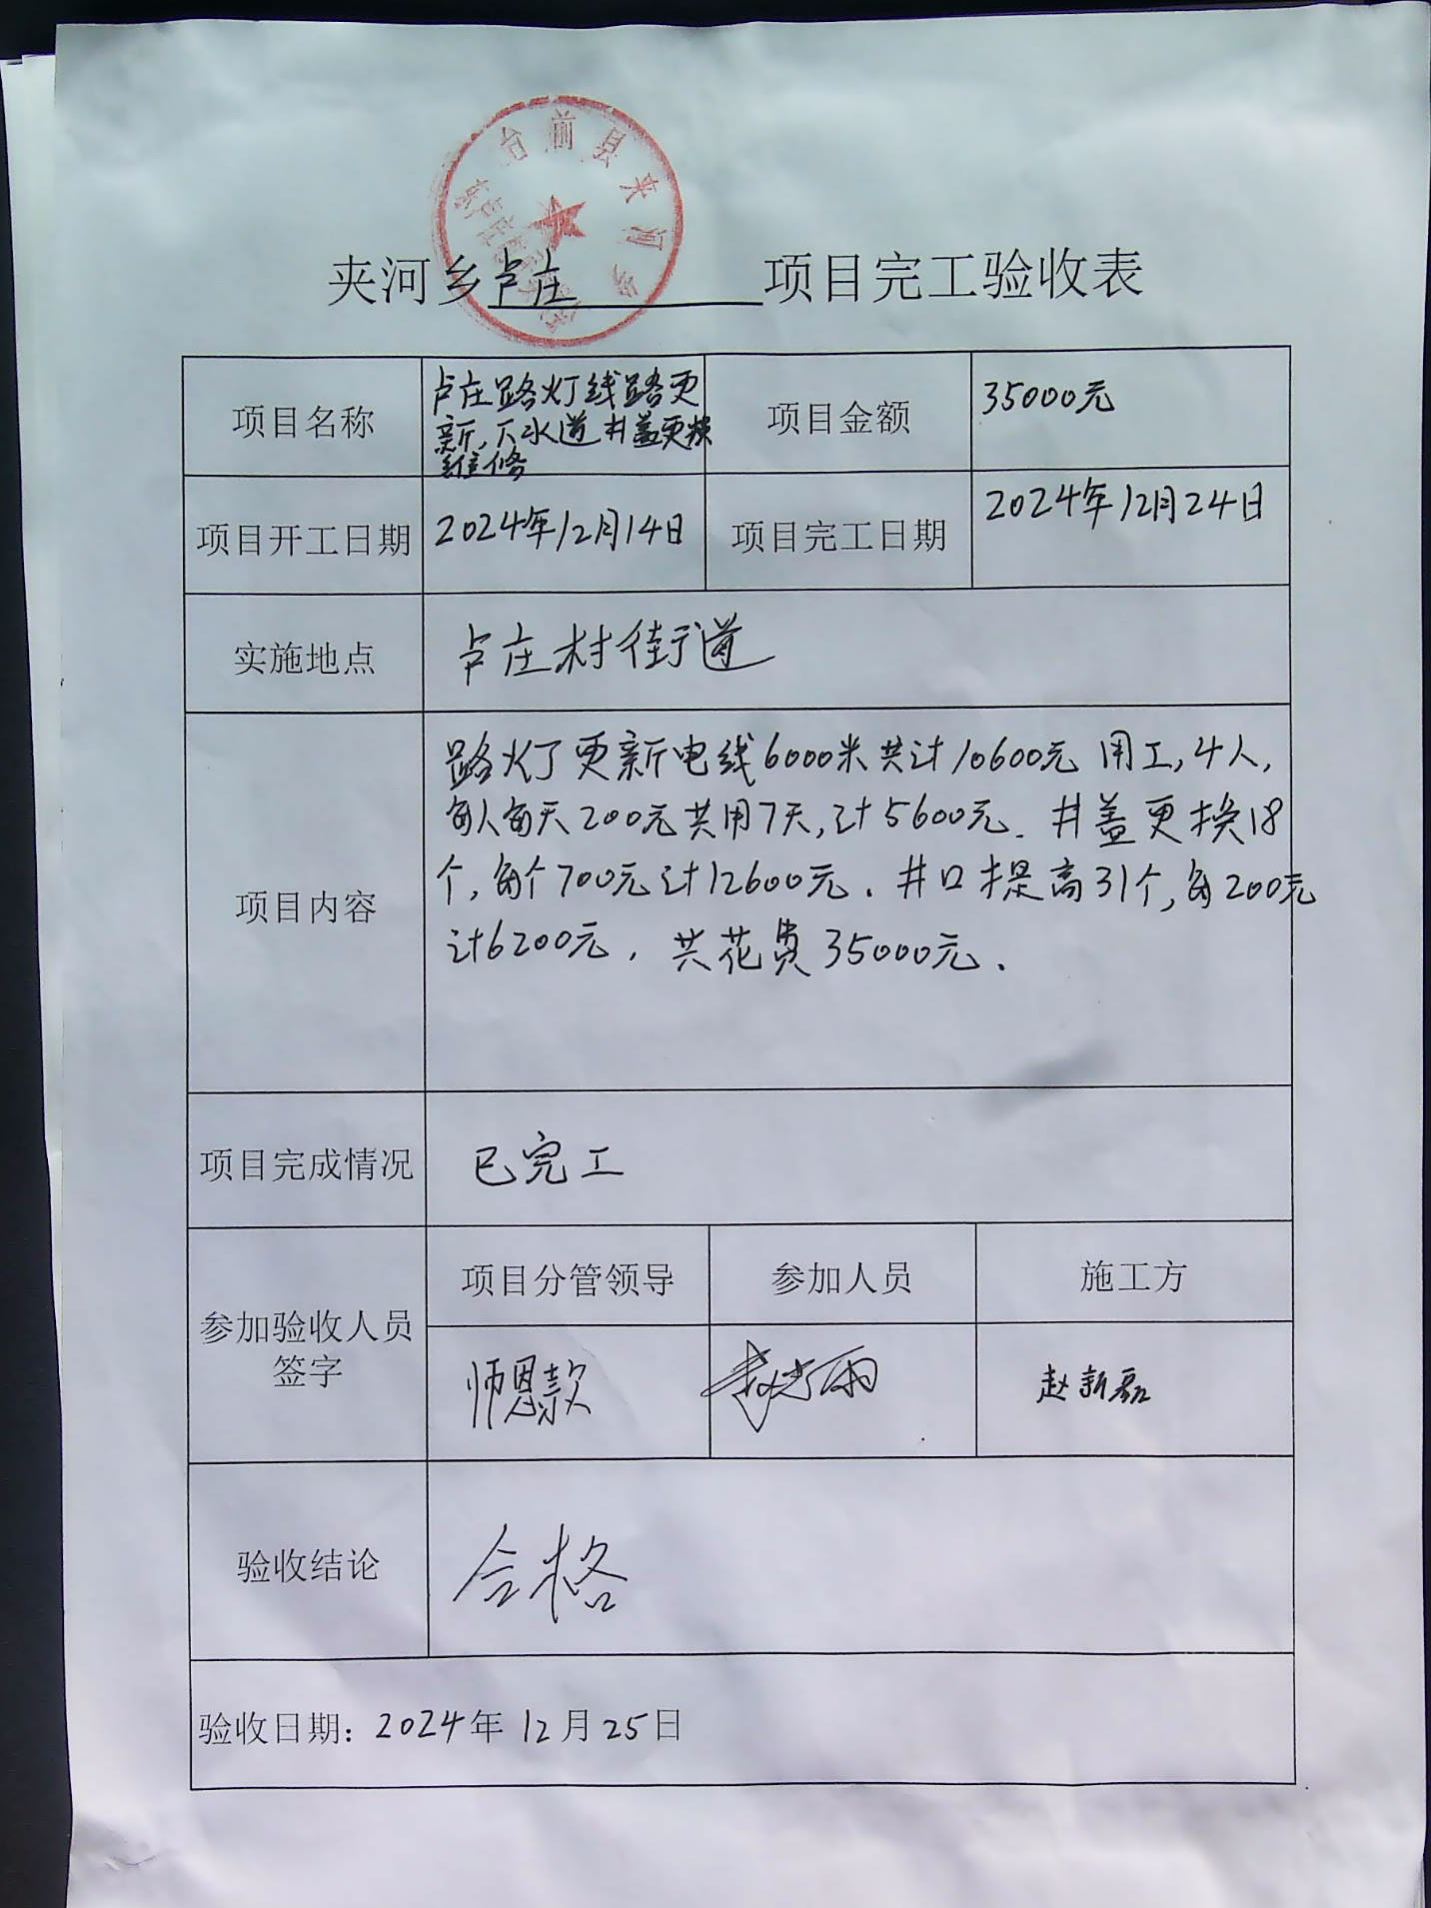 台前县夹河乡
夹河乡卢庄 项目完工验收表
项目名称 卢庄路灯线路更新,下水道井盖更换维修 项目金额 35000元
项目开工日期 2024年12月14日 项目完工日期 2024年12月24日
实施地点 卢庄村街道
路灯更新电线6000米共计10600元 用工,4人,
每人每天200元共用7天,计5600元.井盖更换18
项目内容 个,每个700元计12600元.井口提高31个,每200元
计6200元,共花费35000元.
项目完成情况 已完工
项目分管领导 参加人员 施工方
参加验收人员
签字 师恩款 赵新磊
验收结论 合格
验收日期: 2024年12月25日